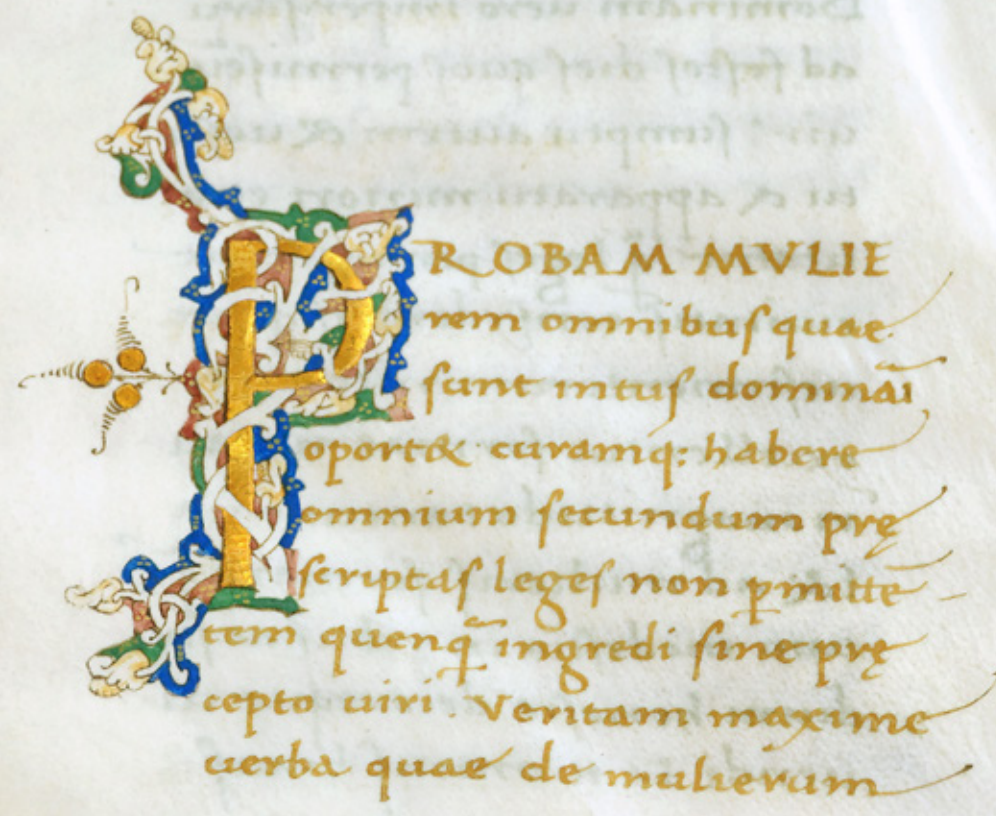 PROBAM MVLIE
rem omnibus quae
sunt intus dominãi
oport& curamq: habere
omnium secundum prę
scriptas leges non p̱mittē
tem quenq̃ ingredi sine prę
cepto uiri. Veritam maxime
uerba quae de mulierum